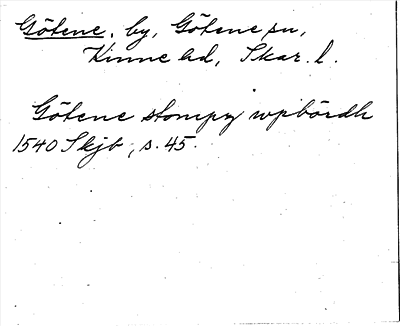 Götene, by, Götene sn,
Kinne hd, Skar. l.
Götene stompn wpbördh
1540 Skjb, s. 45.